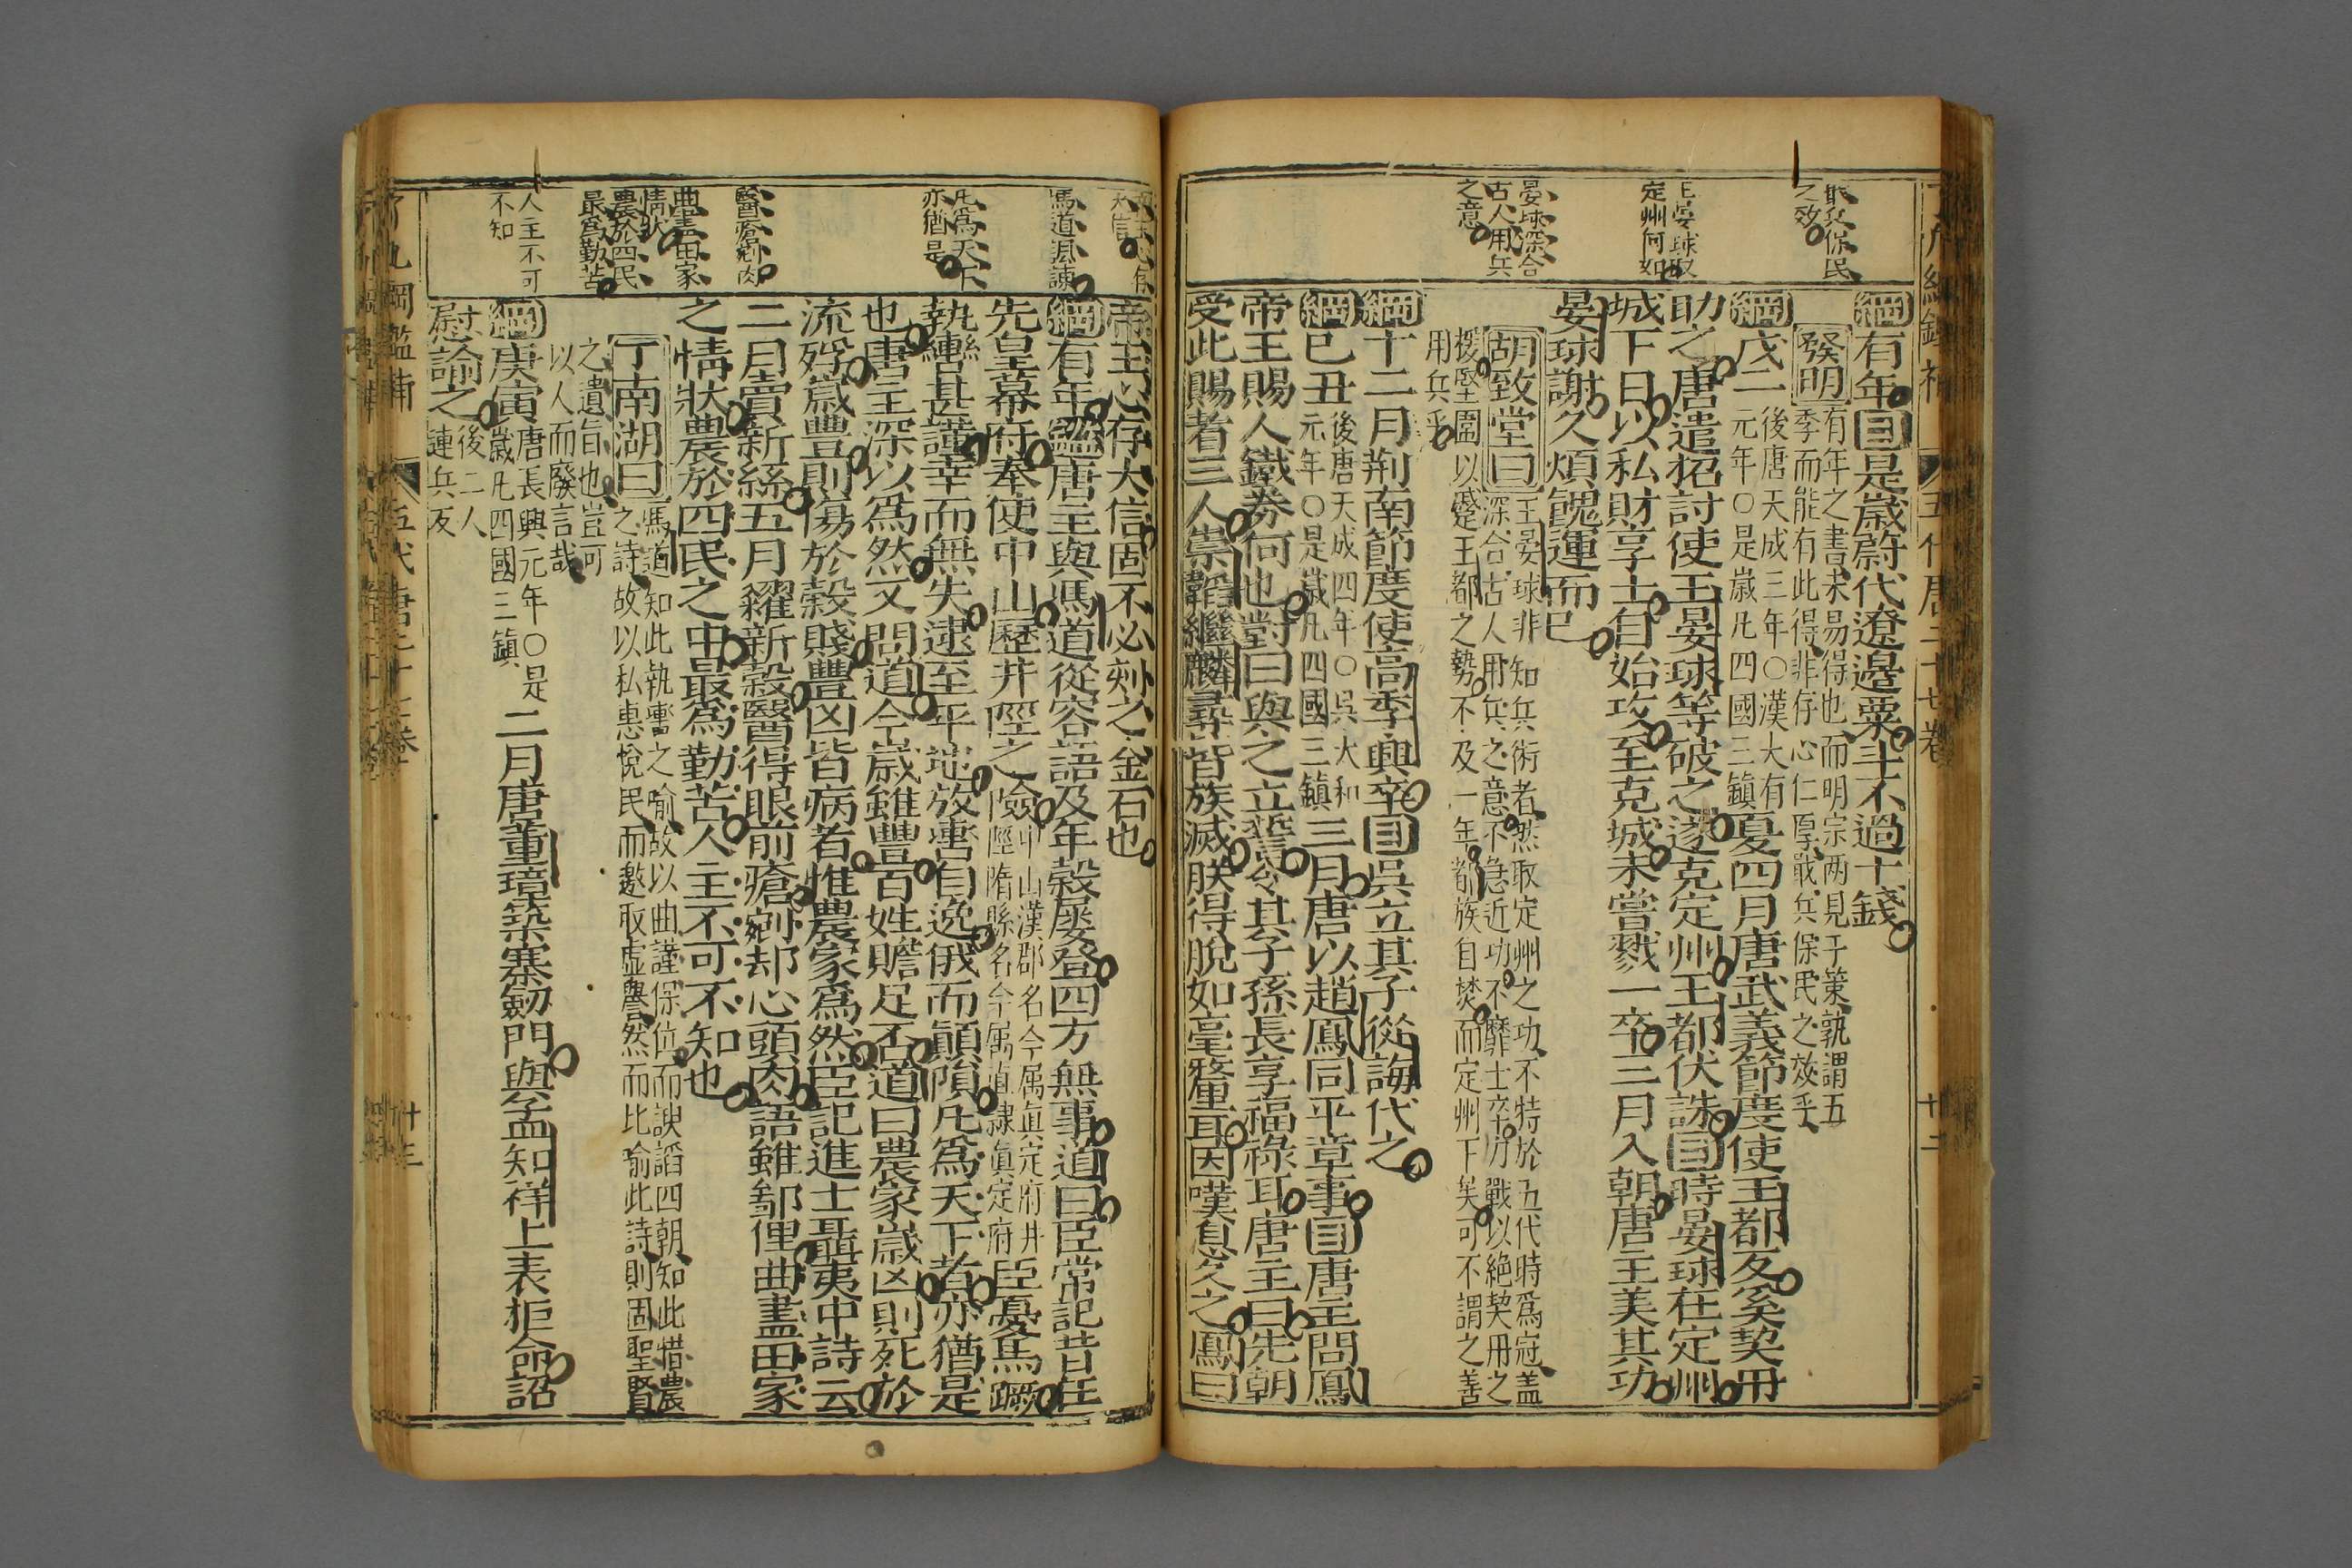 戢兵保民
之效
王晏球取
定州何如
晏球深合
古人用兵
之意
綱有年目是歲蔚代邊粟斗不過十錢
發明
有年之書未易得也而明宗两見于策孰謂五
季而能有此得非存心仁厚戢兵保民之效乎
綱戊子
後唐天成三年○漢大有
元年○是歲凡四國三鎮
夏四月唐武義節度使王都反奚契丹
助之唐遣招討使王晏球等破之遂克定州王都伏誅目時晏球在定州
城下日以私財享士自始攻至克城未嘗戮一卒三月入朝唐主美其功
晏球謝久煩餽運而已
胡致堂曰
王晏球非知兵術者然取定州之功不特於五代時爲冠盖
深合古人用兵之意不急近功不靡士卒厉戰以絶契丹之
援堅圍以蹙王都之勢不及一年都族自焚而定州下矣可不謂之善
用兵乎
綱十二月荆南節度使高季興卒目吳立其子從誨代之
綱己丑
後唐天成四年○吳大和
元年○是歲凡四國三鎮
三月唐以趙鳳同平章事目唐主問鳳
帝王賜人鐵券何也對曰與之立誓令其子孫長享福祿耳唐主曰先朝
受此賜者三人崇韜繼麟尋皆族滅朕得脫如毫釐耳因嘆息久之鳳曰
五代唐二十七卷
十二
馮道諷諫
凡爲天下
亦猶是
醫瘡剜肉
曲盡田家
情狀
農於四民
最爲勤苦
人主不可
不知
帝王心存大信固不必刻之金石也
綱有年鑑唐主與馮道從容語及年穀屡登四方無事道曰臣常記昔在
先皇幕府奉使中山歷井陘之險
中山漢郡名今属眞定府井
陘隋縣名今属直隸眞定府
臣憂馬蹶
執轡甚謹幸而無失逮至平地放轡自逸俄而顚隕凡爲天下者亦猶是
也唐主深以爲然又問道今歲雖豐百姓贍足否道曰農家歲凶則死於
流殍歲豐則傷於穀賤豐凶皆病者惟農家爲然臣記進士聶夷中詩云
二月賣新絲五月糴新穀醫得眼前瘡剜却心頭肉語雖鄙俚曲盡田家
之情狀農於四民之中最爲勤苦人主不可不知也
丁南湖曰
馮道知此執轡之喻故以曲謹保位而諛謟四朝知此惜農
之詩故以私惠悅民而邀取虛譽然而比喻此詩則固聖賢
之遺旨也豈可
以人而廢言哉
綱庚寅
唐長興元年○是
歲凡四國三鎮
二月唐董璋築寨劒門與孟知祥上表拒命詔
慰諭之
後二人
連兵反
五代唐二十七卷
十三